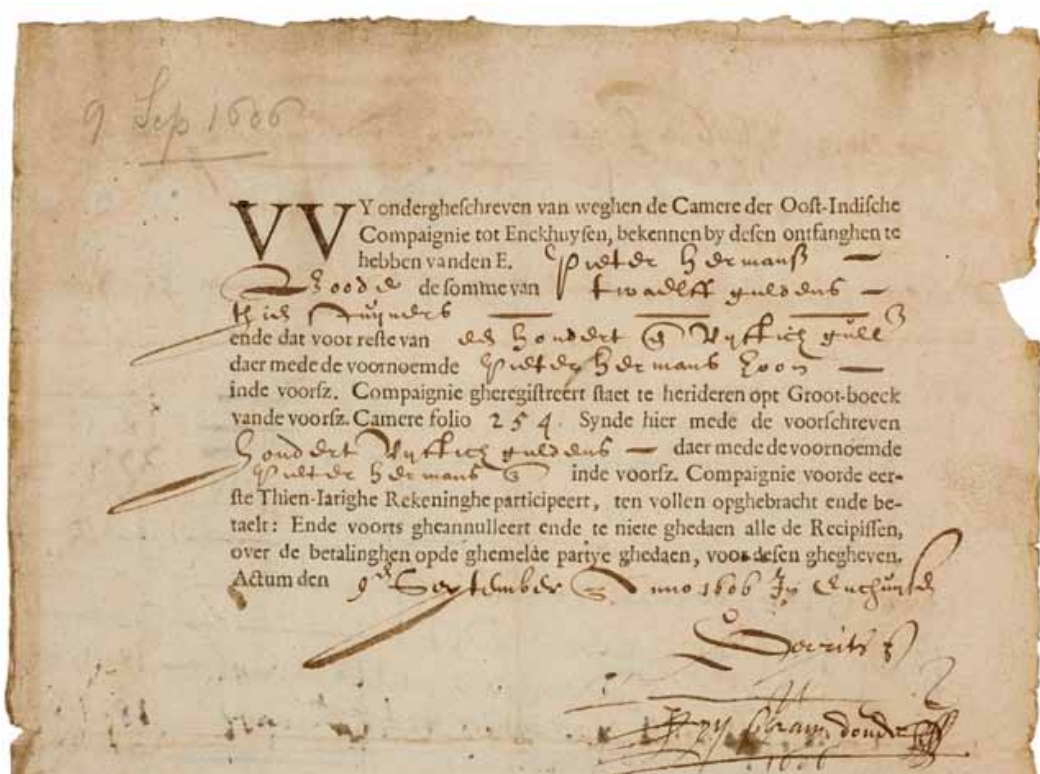 9 Sep 1606
VVY onderghefchreven van weghen de Camere der Ooſt-Indiſche
Compaignie tot Enckhuyſen, bekennen by deſen ontfanghen te
hebben vanden E. Pieter Hermanß —
de ſomme van twaelff guldens —
thien
ende dat voor reſte van een hondert en Vyftich gull
daer mede de voornoemde Pieter Hermans zoon —
inde voorſz. Compaignie gheregiſtreert ſtaet te herideren opt Groot-boeck
vande voorſz. Camere folio 254. Synde hier mede de voorſchreven
hondert Vyftich guldens — daer mede de voornoemde
Pieter Hermans inde voorſz. Compaignie voorde eer-
ſte Thien-Iarighe Rekeninghe participeert, ten vollen opghebracht ende be-
taelt: Ende voorts gheannulleert ende te niete ghedaen alle de Recipiſſen,
over de betalinghen opde ghemelde partye ghedaen, voor deſen ghegheven.
Actum den 9en September Anno 1606 In
Gerrits
1606